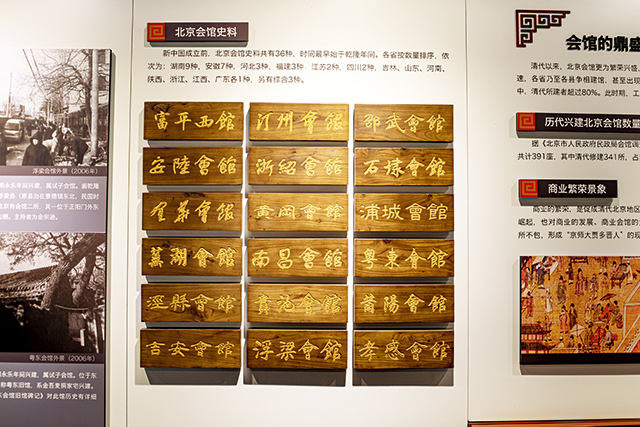 浮梁会馆外景（2006年）
粤东会馆外景（2006年）
北京会馆史料
新中国成立前，北京会馆史料共有36种，时间最早始于乾隆年间。各省按数量排序，依
次为：湖南9种，安徽7种，河北3种，福建3种，江苏2种，四川2种，吉林、山东、河南、
陕西、浙江、江西、广东各1种，另有综合3种。
富平西館
汀州會館
邵武會館
安陸會館
浙紹會館
石埭會館
金華會館
黃岡會館
浦城會館
蕪湖會館
南昌會館
粤東會館
涇縣會館
貴池會館
莆陽會館
吉安會館
浮梁會館
孝感會館
会馆的鼎盛
清代以来，北京会馆更为繁荣兴盛，
速，各省乃至各县争相建馆，甚至出现
中，清代所建者超过80%。此时期，工
历代兴建北京会馆数量
据《北京市人民政府民政局会馆调
共计391座，其中清代修建341所，占
商业繁荣景象
商业的繁荣，是促成清代北京地区
崛起，也对商业的发展、商业会馆的
所不包，形成“京师大贾多晋人”的现